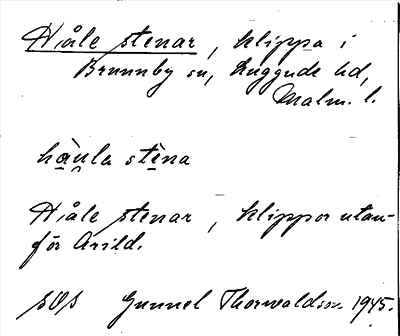 Håle stenar, klippa i
Brunnby sn, Luggude hd,
Malm. l.
hàula stèna
Håle stenar, klippor utan-
för Arild.
Gunnel Thorwaldson 1945.